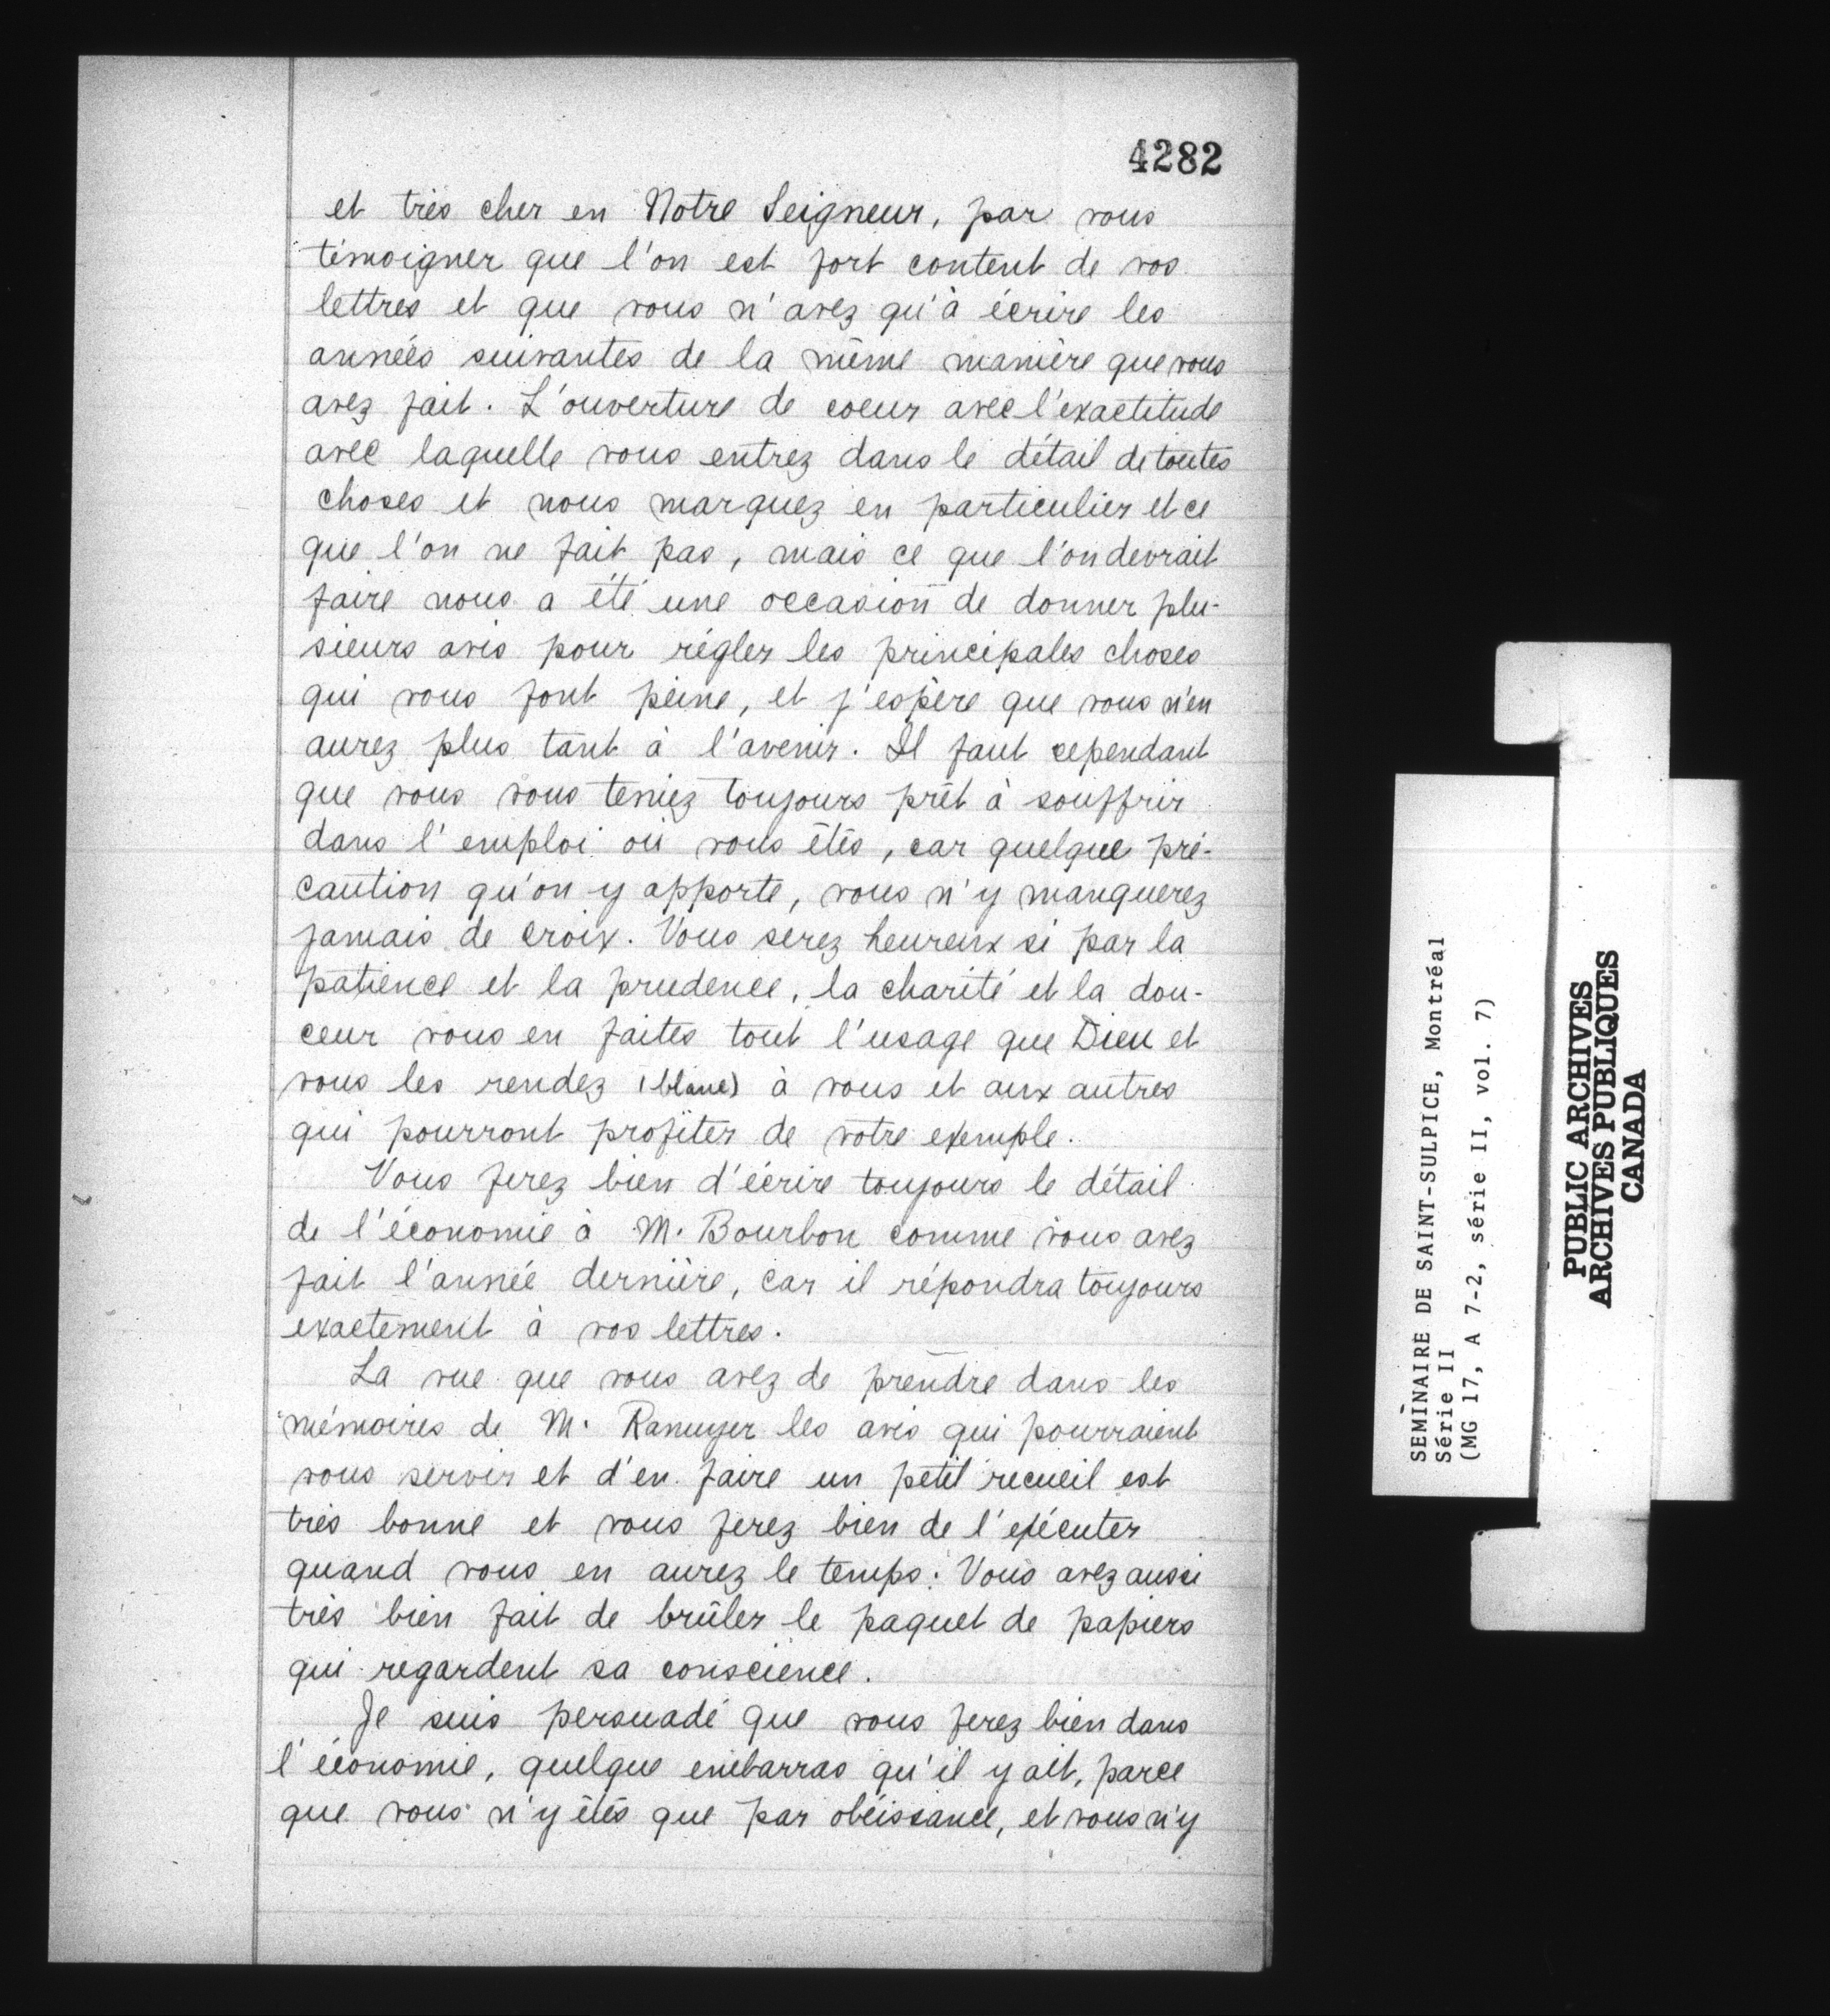 4282
et très cher en Notre Seigneur, par vous
témoigner que l'on est fort content de vos
lettres et que vous n'avez qu'à écrire les
années suivantes de la même manière que vous
avez fait. L'ouverture de coeur avec l'exactitude
avec laquelle vous entrez dans le détail de toutes
choses et nous marquez en particulier et ce
que l'on ne fait pas, mais ce que l'on devrait
faire nous a été une occasion de donner plu-
sieurs avis pour régler les principales choses
qui vous font peine, et j'espère que vous n'en
aurez plus tant à l'avenir. Il faut cependant
que vous vous teniez toujours prêt à souffrir
dans l'emploi où vous êtes, car quelque pré-
caution qu'on y apporte, vous n'y manquerez
jamais de croix. Vous serez heureux si par la
patience et la prudence, la charité et la dou-
ceur vous en faites tout l'usage que Dieu et
vous les rendez (blanc) à vous et aux autres
qui pourront profiter de votre exemple.
Vous ferez bien d'écrire toujours le détail
de l'économie à M. Bourbon comme vous avez
fait l'année dernière, car il répondra toujours
exactement à vos lettres.
La vue que vous avez de prendre dans les
mémoires de M. Ranuyer les avis qui pourraient
vous servir et d'en faire un petit recueil est
très bonne et vous ferez bien de l'exécuter
quand vous en aurez le temps. Vous avez aussi
très bien fait de brûler le paquet de papiers
qui regardent sa conscience.
Je suis persuadé que vous ferez bien dans
l'économie, quelque embarras qu'il y ait, parce
que vous n'y êtes que par obéissance, et vous n'y
SEMINAIRE DE SAINT-SULPICE, Montréal
Série II
(MG 17, A 7-2, série II, vol. 7)
PUBLIC ARCHIVES
ARCHIVES PUBLIQUES
CANADA